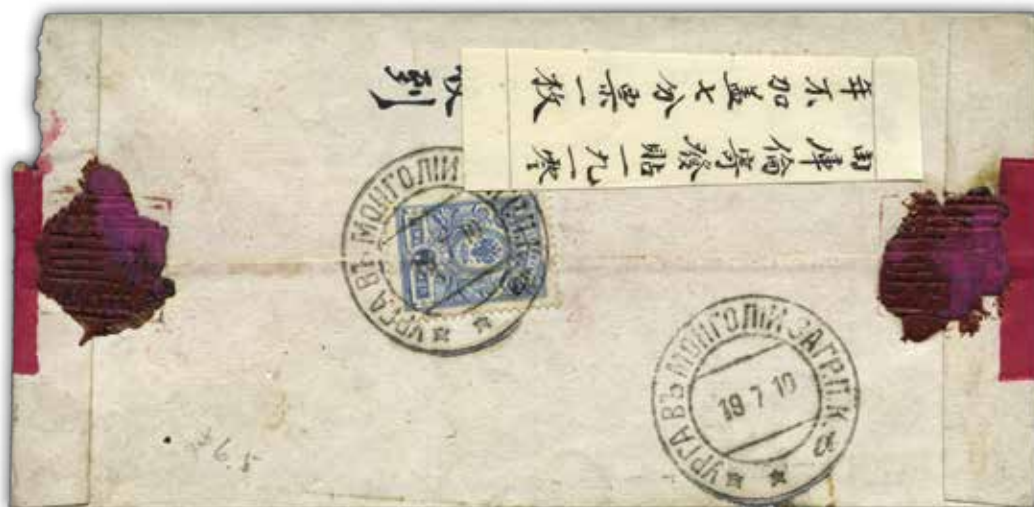 由庫倫寄發貼一九一零
年不加蓋七分票一枚
到
УРГА ВЪ МОНГОЛІИ
УРГА ВЪ МОНГОЛІИ ЗАГР.П.К.
19 7 10